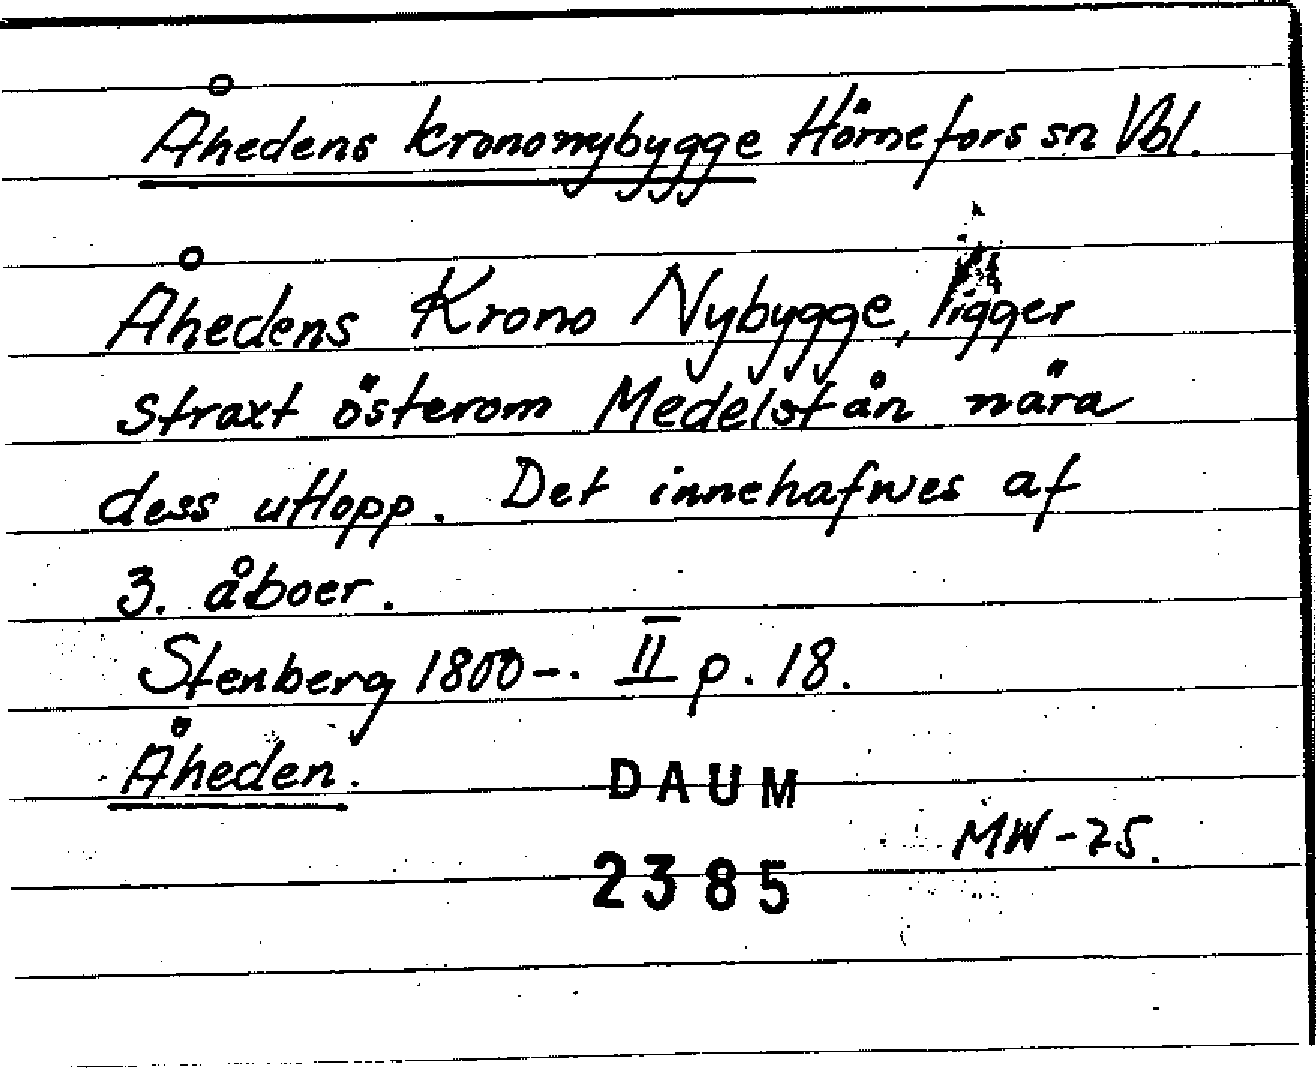 Åhedens krononybygge Hörnefors sn Vbl.
Åhedens Krono Nybygge, ligger
straxt österom Medelst ån nära
dess utlopp. Det innehafwes af
3. åboer.
Stenberg 1800-. II p. 18.
Åheden.
DAUM
MW-25.
2385